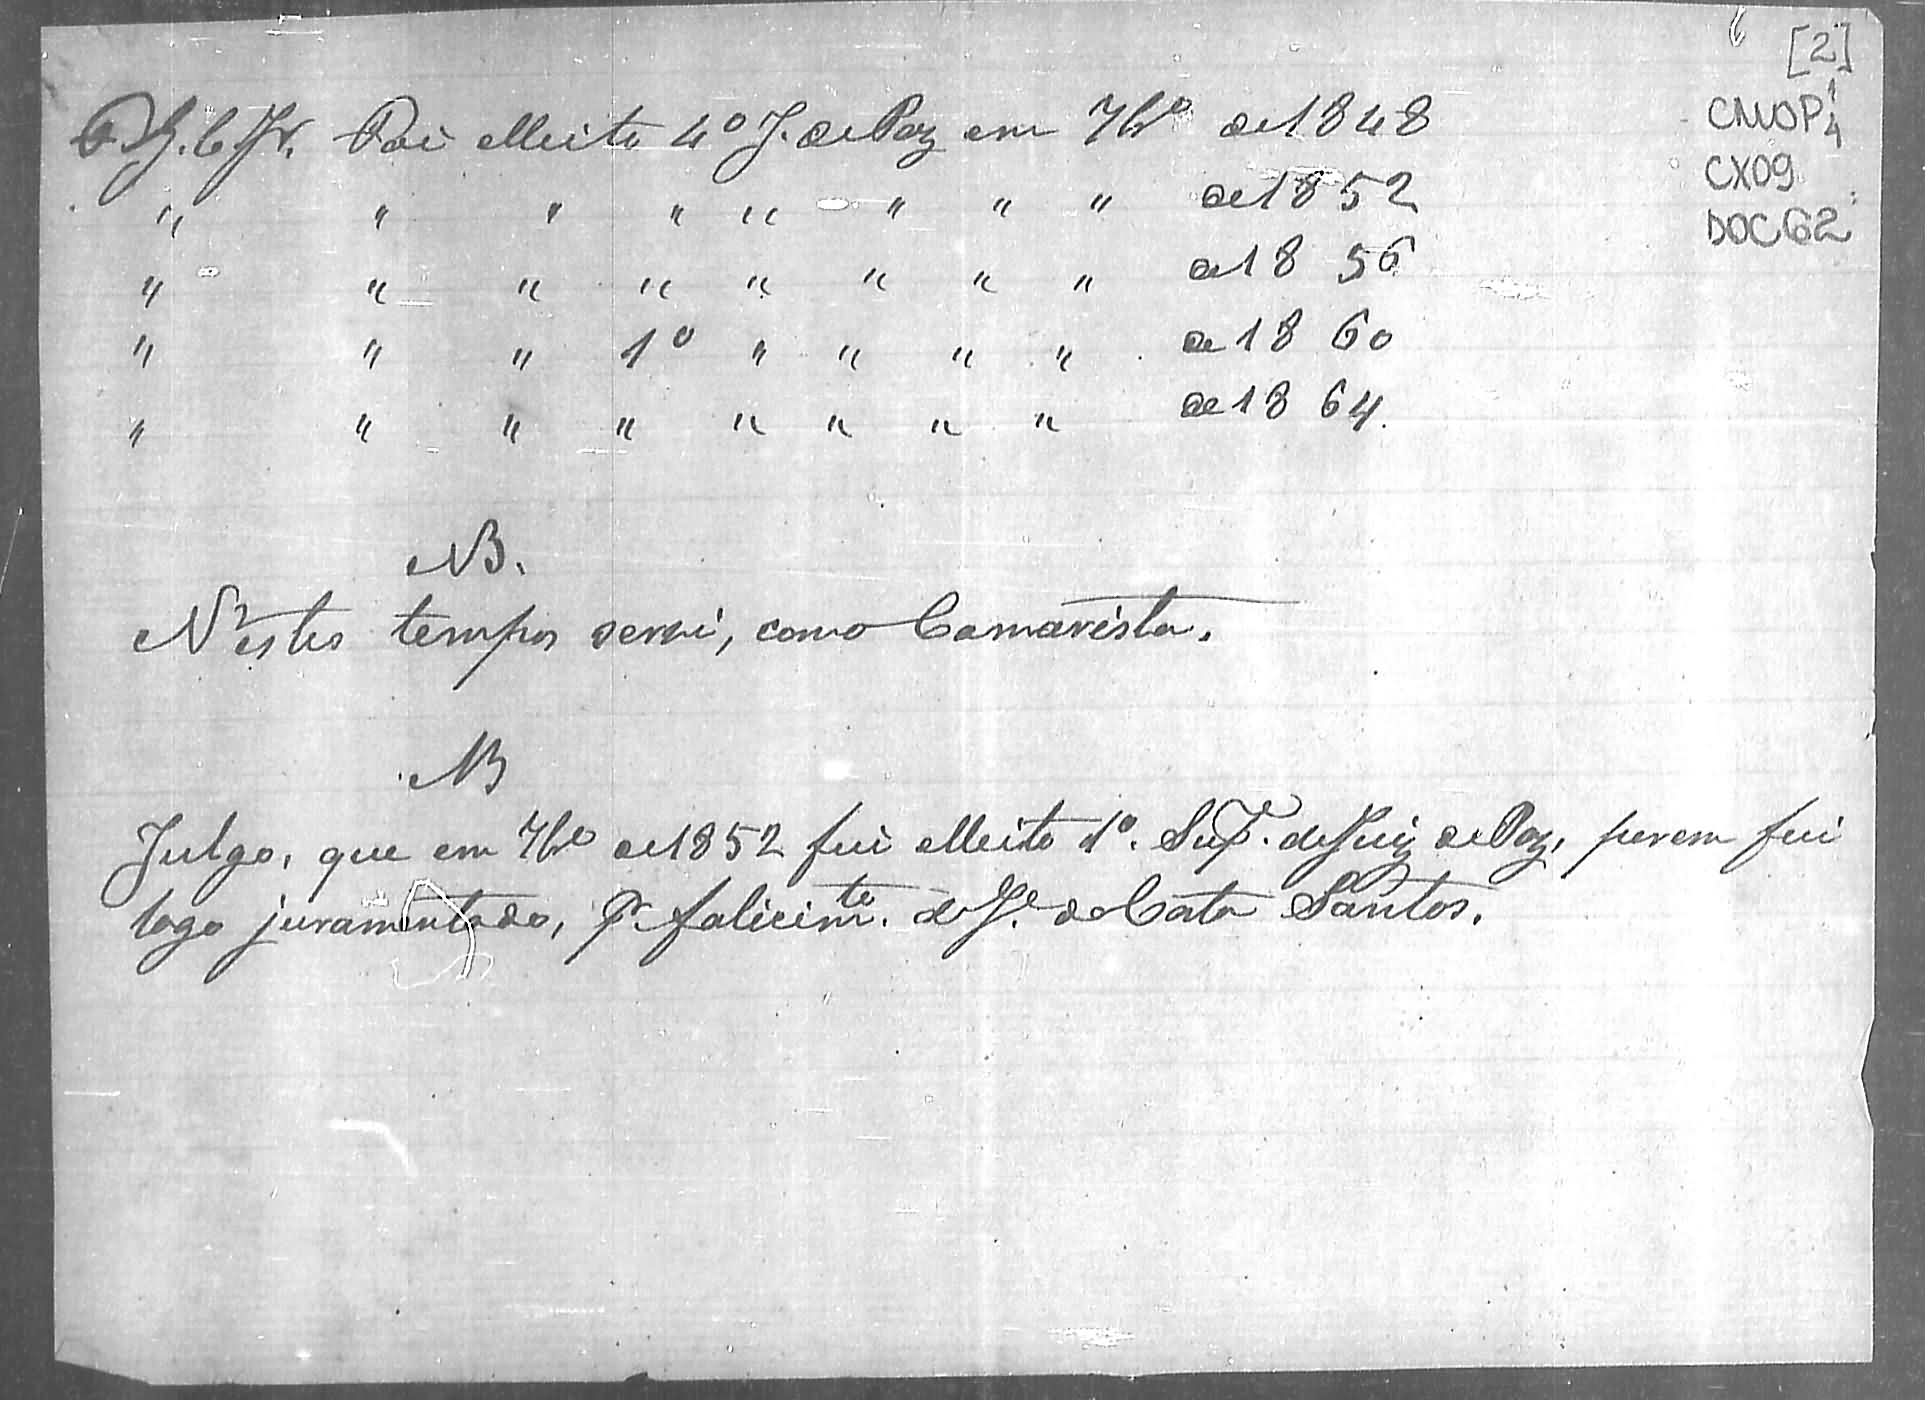 [2]
CMOP
CX09
DOC62
Foi elleito 4º J. de Paz em 7bro de 1848
" " " " " " " " de 1852
" " " " " " " " de 1856
" " " 1º " " " " de 1860
" " " " " " " " de 1864.
NB.
N'estes tempos servi, como Camarista.
NB
Julgo, que em 7bro de 1852 fui elleito 1º. Sup.e de Juiz de Paz, porem fui
logo juramentado, pr. falicimto. de Je. da Cata Santos.